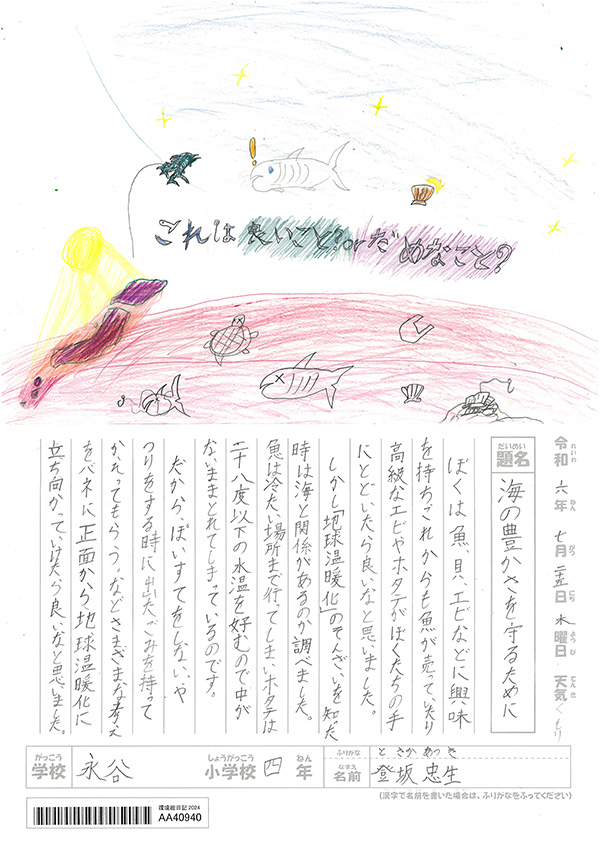 これは良いこと?orだめなこと?
令和 六年 七月 二五日 木曜日 天気 くもり
れいわ ねん がつ にち ようび てんき
だいめい
題名 海の豊かさを守るために
ぼくは魚、貝、エビなどに興味
を持ちこれからも魚が売っていたり
高級なエビやホタテがぼくたちの手
にとどいたら良いなと思いました。
しかし「地球温暖化」のそんざいを知った
時は海と関係があるのか調べました。
魚は冷たい場所まで行ってしまいホタテは
二十八度以下の水温を好むので中が
ないままとれてしまっているのです。
だからぽいすてをしない、や
つりをする時に出たごみを持って
かえってもらう。などさまざまな考え
をバネに正面から地球温暖化に
立ち向かっていけたら良いなと思いました。
がっこう しょうがっこう ねん ふりがな とさか あつき
学校 永谷 小学校 四年 なまえ 名前 登坂 忠生
(漢字で名前を書いた場合は、ふりがなをふってください)
環境絵日記 2024
AA40940